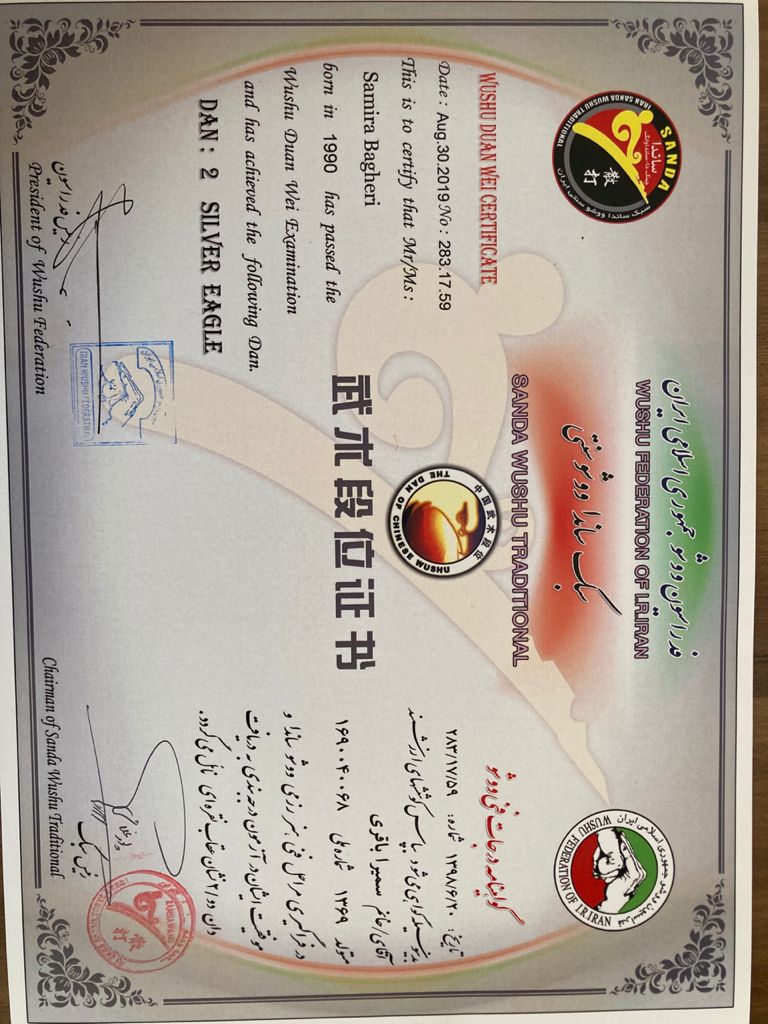 فدراسیون ووشو جمهوری اسلامی ایران
WUSHU FEDERATION OF I.R.IRAN
سبک ساندا ووشو سنتی
SANDA WUSHU TRADITIONAL
SANDA
ساندا
散打
IRAN SANDA WUSHU TRADITIONAL
سبک ساندا ووشو سنتی ایران
فدراسیون ووشو جمهوری اسلامی ایران
WUSHU FEDERATION OF I.R.IRAN
中国武术段位
THE DAN OF CHINESE WUSHU
武术段位证书
WUSHU DUAN WEI CERTIFICATE
Date : Aug.30.2019 No : 283.17.59
This is to certify that Mr/Ms :
Samira Bagheri
born in 1990 has passed the
Wushu Duan Wei Examination
and has achieved the following Dan.
DAN : 2 SILVER EAGLE
گواهینامه درجات فنی ووشو
تاریخ: ۱۳۹۸/۶/۲۰ شماره: ۲۸۳/۱۷/۵۹
بدینوسیله گواهی می شود به پاس کوششهای ارزشمند
آقای/خانم سمیرا باقری
متولد ۱۳۶۹ شماره ملی ۱۶۹۰۰۴۰۰۶۸
در فراگیری مراحل فنی هنر رزمی ووشو ساندا و
موفقیت ایشان در آزمون درجه بندی به دریافت
دان دو/۲ نشان عقاب نقره ای نائل می گردد.
President of Wushu Federation
IRAN WUSHU FEDERATION
Chairman of Sanda Wushu Traditional
散打